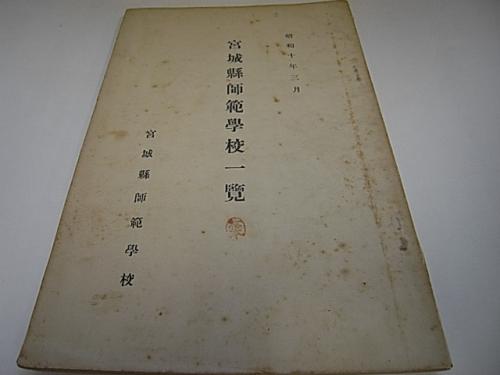 昭和十年三月
宮城縣師範學校一覽
宮城縣師範學校